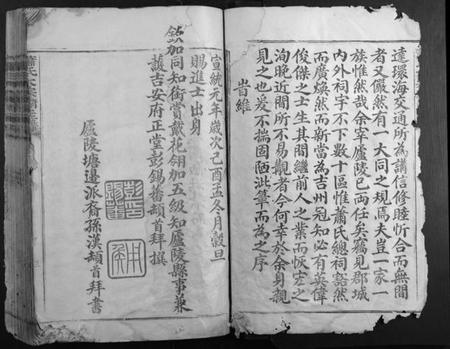 達環海交通所為講信修睦忻合而無間
者又儼然有一大同之規焉夫豈一家一
族惟然哉余宰廬陵巳兩任矣竊見郡城
内外祠宇不下數十區惟蕭氏總祠豁然
而廣煥然而新當為吉州冠知必有英偉
俊傑之士生其間繼前人之業而恢宏之
洵晚近間所不易覯者今何幸於余身親
見之也爰不揣固陋泚筆而為之序
旹維
宣統元年歲次己酉孟冬月穀旦
賜進士出身
欽加同知銜賞戴花翎加五級知廬陵縣事兼
護吉安府正堂彭錫蕃頓首拜撰
廬陵塘邊派裔孫漢頓首拜書